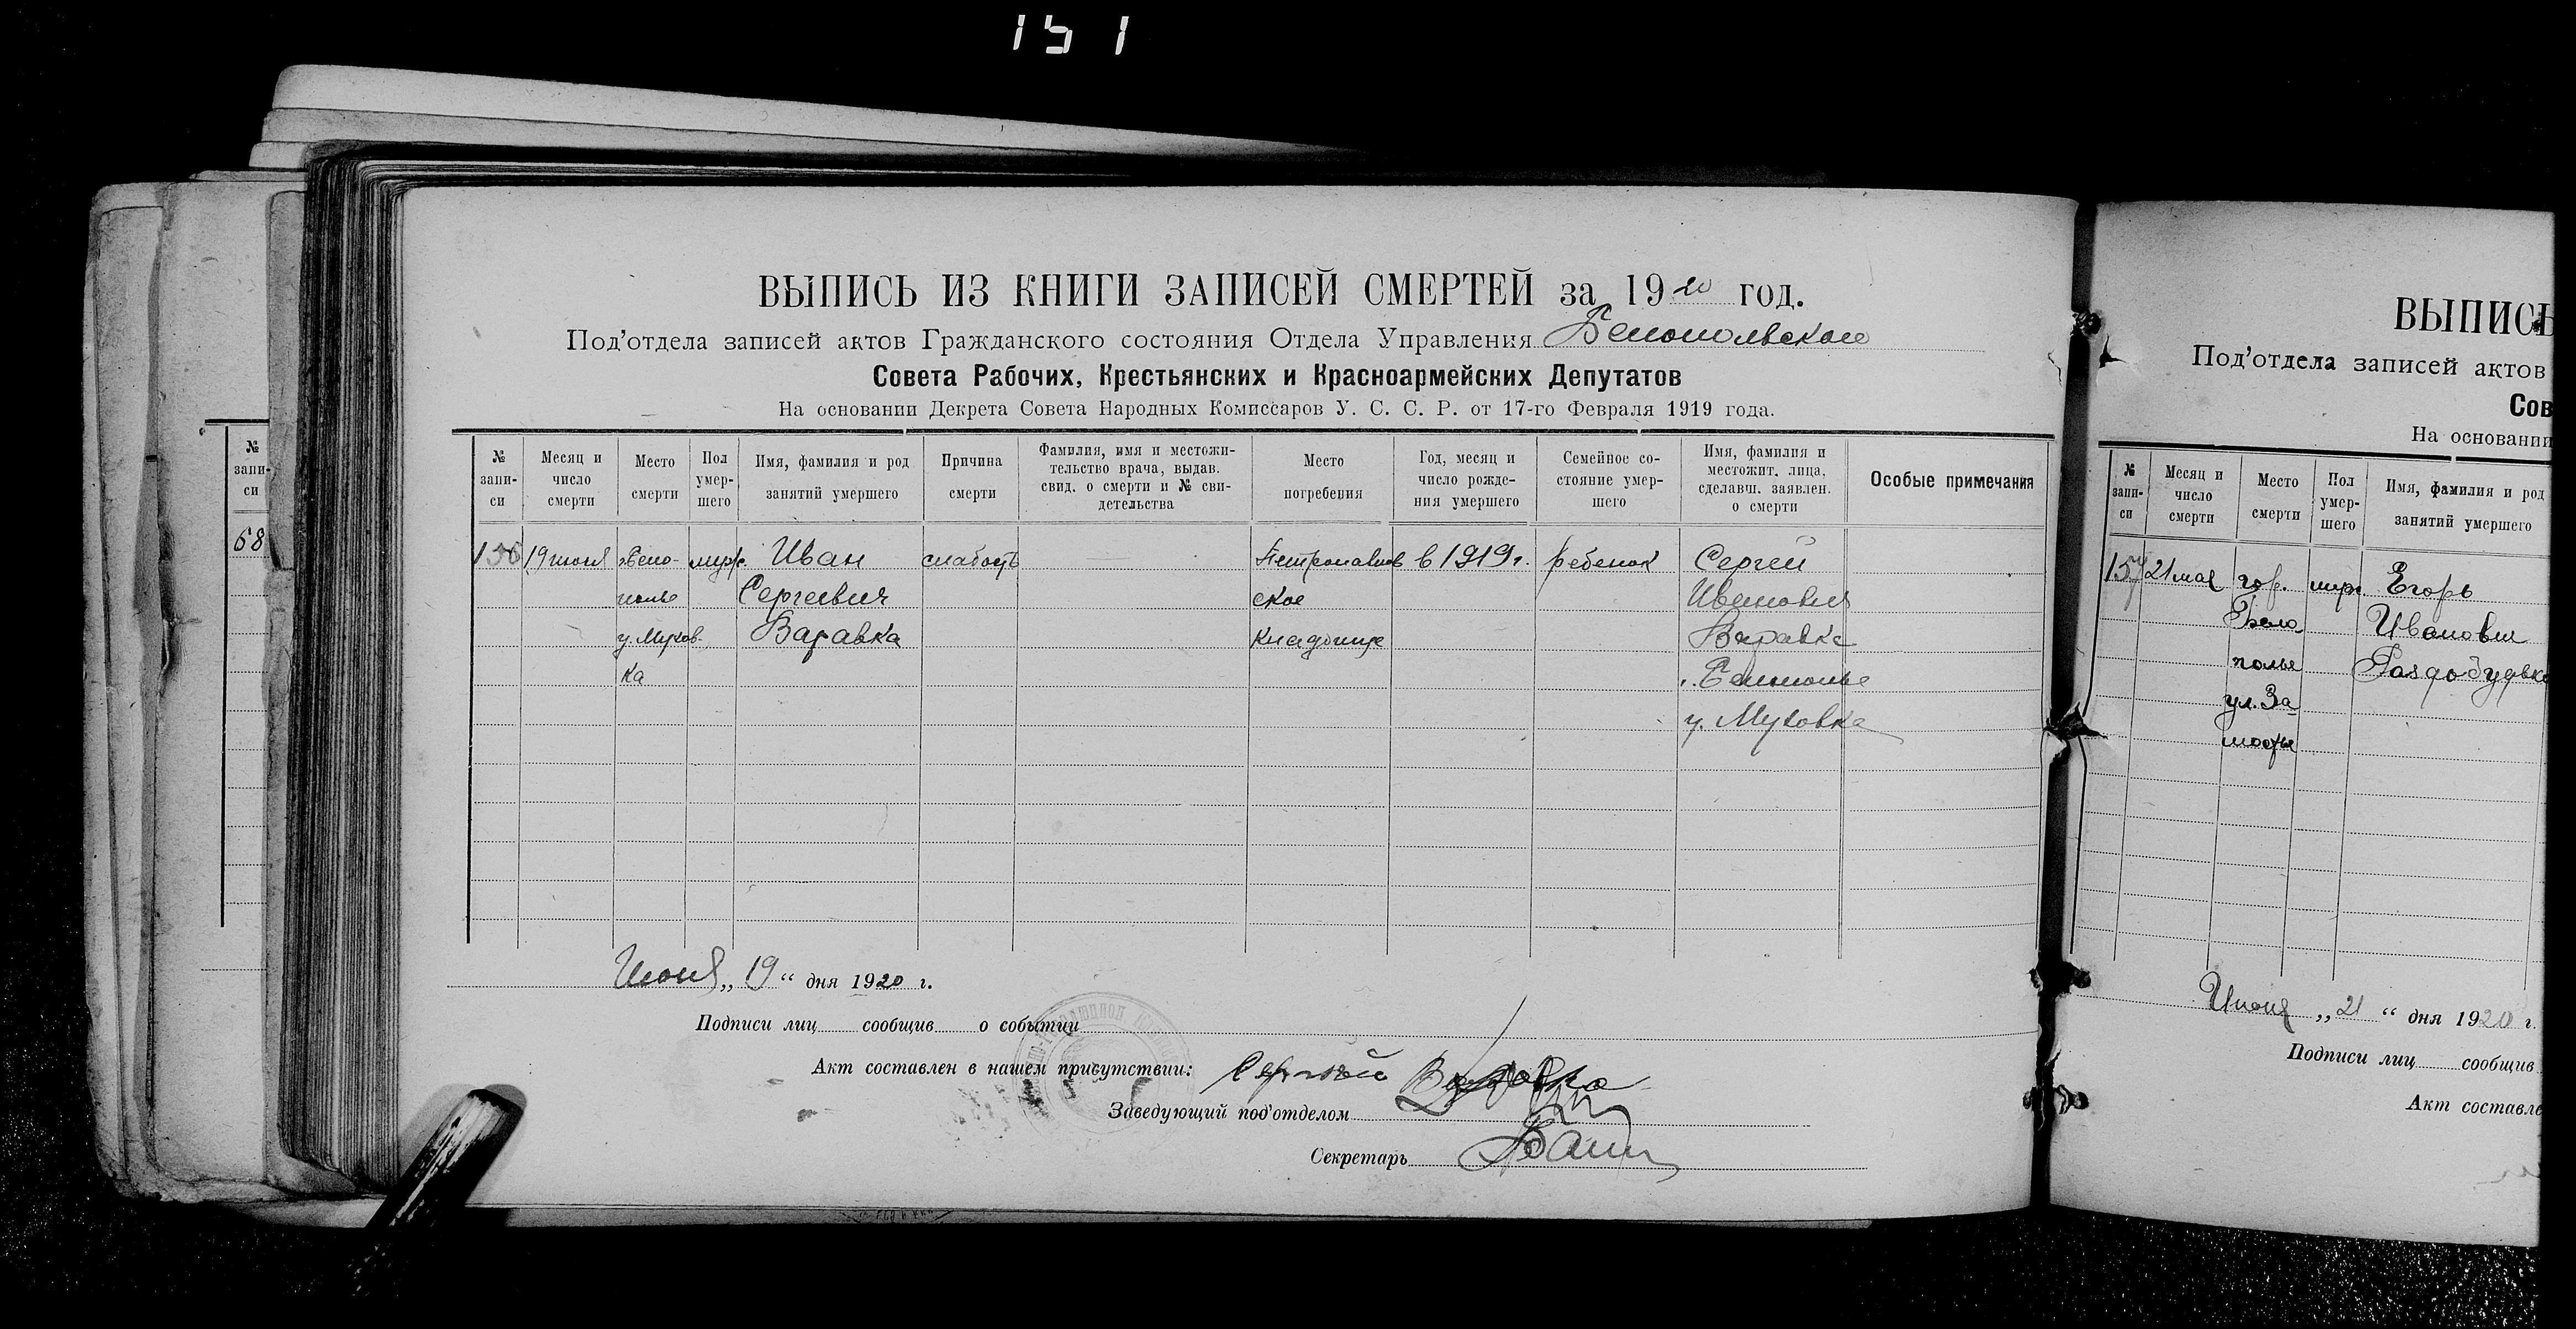 151
ВЫПИСЬ ИЗ КНИГИ ЗАПИСЕЙ СМЕРТЕЙ за 1920 год.
Под'отдела записей актов Гражданского состояния Отдела Управления Белопольского
Совета Рабочих, Крестьянских и Красноармейских Депутатов
На основании Декрета Совета Народных Комиссаров У. С. С. Р. от 17-го Февраля 1919 года.
№ запи-си
Месяц и число смерти
Место смерти
Пол умер-шего
Имя, фамилия и род занятий умершего
Причина смерти
Фамилия, имя и местожи-тельство врача, выдав. свид. о смерти и № сви-детельства
Место погребения
Год, месяц и число рожде-ния умершего
Семейное со-стояние умер-шего
Имя, фамилия и местожит. лица, сделавш. заявлен. о смерти
Особые примечания
156 19 июня Бело- муж. Иван слабость Петропавлов в 1919 г. ребенок Сергей
полье Сергеевич ское Иванович
у. Муков- Варавка кладбище Варавка
ка Белополье
у. Муковка
Июня „ 19 “ дня 1920 г.
Подписи лиц сообщив о событии
Акт составлен в нашем присутствии: Сергей Варавка
Заведующий под'отделом
Секретарь
№ запи-си
68
ВЫПИСЬ
Под'отдела записей актов
Сов
На основании
№ запи-си
Месяц и число смерти
Место смерти
Пол умер-шего
Имя, фамилия и род занятий умершего
157 21 мая гор. муж Егорь
Бело Иванович
полье
ул. За
мостье
Июня „ 21 “ дня 1920 г.
Подписи лиц сообщив
Акт составле